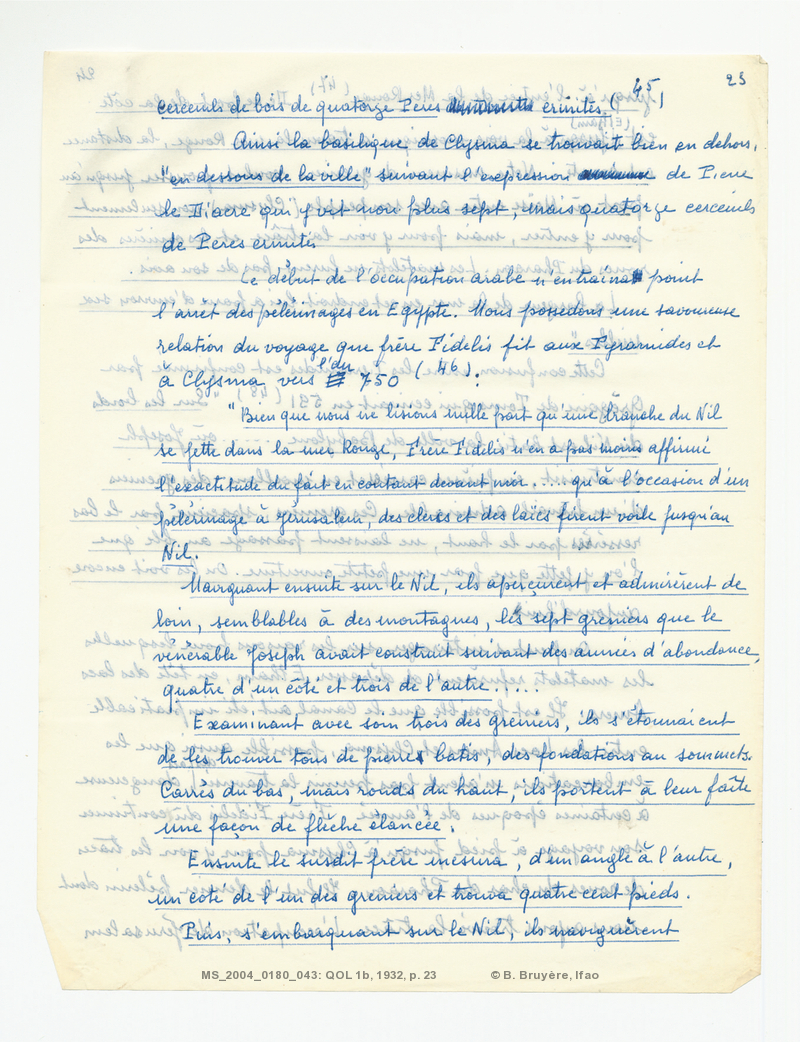 23
cercueils de bois de quatorze Peres ermites (45)
Ainsi la basilique, de Clysma se trouvait bien en dehors,
"en dessous de la ville" suivant l'expression de Pierre
le Diacre qui y vit non plus sept, mais quatorze cercueils
de Peres ermites
Le début de l'occupation arabe n'entraîna point
l'arret des pélerinages en Egypte. Nous possedons une savoureuse
relation du voyage que frère Fidelis fit aux Pyramides et
à Clysma vers l'an 750 (46) :
"Bien que nous ne lisions nulle part qu'une branche du Nil
se jette dans la mer Rouge, Frère Fidelis n'en a pas moins affirmé
l'exactitude du fait en contant devant moi... qu'à l'occasion d'un
pélerinage à Jérusalem, des clercs et des laïcs firent voile jusqu'au
Nil.
Naviguant ensuite sur le Nil, ils aperçurent et admirèrent de
loin, semblables à des montagnes, les sept greniers que le
vénérable Joseph avait construit suivant des années d'abondance,
quatre d'un côté et trois de l'autre.....
Examinant avec soin trois des greniers, ils s'étonnaient
de les trouver tous de pierres batis, des fondations au sommets.
Carrés du bas, mais ronds du haut, ils portent à leur faîte
une façon de flèche élancée.
Ensuite le susdit frère mesura, d'un angle à l'autre,
un cote de l'un des greniers et trouva quatre cent pieds.
Puis, s'embarquant sur le Nil, ils naviguèrent
MS_2004_0180_043: QOL 1b, 1932, p. 23 © B. Bruyère, Ifao